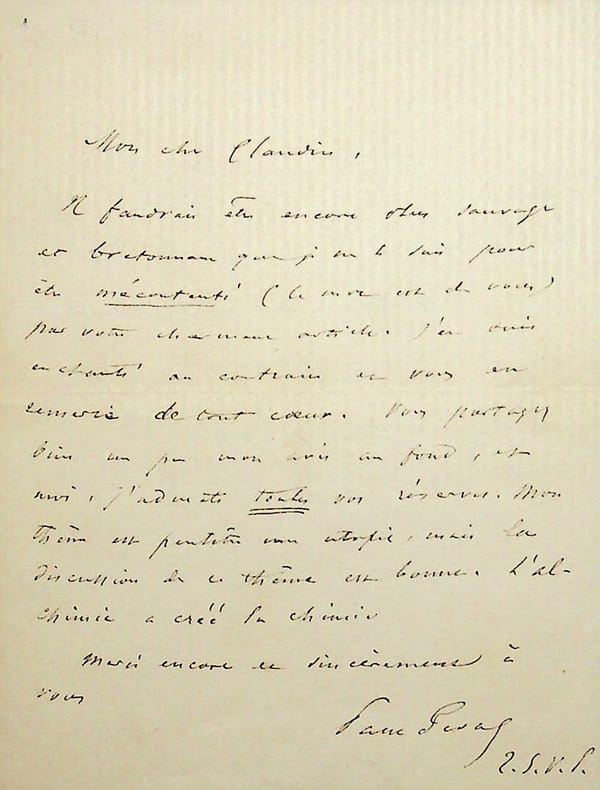 Mon cher Claudin,
Il faudrait être encore plus sauvage
et bretonnant que je ne le suis pour
être mécontenté (le mot est de vous)
par votre charmant article. J'en suis
enchanté au contraire et vous en
remercie de tout cœur. Vous partagez
bien un peu mon avis au fond, et
moi, j'admets toutes vos réserves. Mon
thème est peutêtre une utopie, mais la
discussion de ce thème est bonne. L'al-
chimie a créé la chimie
Merci encore et sincèrement à
vous
Paul Féval
T.S.V.P.